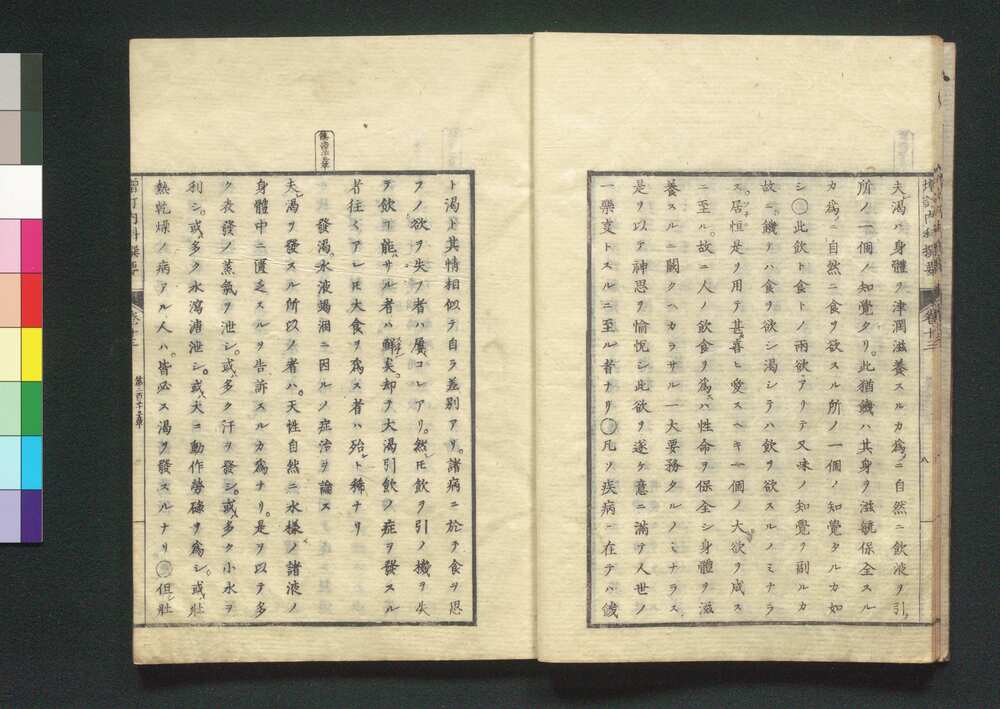 夫渇ハ身體ヲ津潤滋養スルカ為ニ自然ニ飲液ヲ引
所ノ一個ノ知覺タリ。此猶饑ハ其身ヲ滋毓保全スル
カ為ニ自然ニ食ヲ欲スル所ノ一個ノ知覺タルカ如
シ〇此飲ト食トノ兩欲アリテ又味ノ知覺ヲ副ルカ
故ニ饑テハ食ヲ欲シ渇シテハ飲ヲ欲スルノミナラ
ス。居恒是ヲ用テ甚喜ヒ愛スヘキ一個ノ大欲ヲ成ス
ニ至ル。故ニ人ノ飲食ヲ為スハ性命ヲ保全シ身體ヲ滋
養スルニ闕クヘカラサル一大要務タルノミナラス
是ヲ以テ神思ヲ愉悦シ此欲ヲ遂ケ意ニ滿テ人世ノ
一樂事トスルニ至ル者ナリ〇凡ソ疾病ニ在テハ饑
卷十三
八
ト渇ト其情相似テ自ラ差別アリ。諸病ニ於テ食ヲ思
フノ欲ヲ失フ者ハ屢コレアリ。然𪜈飲ヲ引ノ機ヲ失
テ飲フ能ハサル者ハ鮮矣。却テ大渇引飲ノ症ヲ發スル
者往々アレ𪜈大食ヲ為ス者ハ殆ト稀ナリ
發渇水液竭涸ニ因ルノ症治ヲ論ス
夫渇ヲ發スル所以ノ者ハ。天性自然ニ水樣ノ諸液ノ
身體中ニ匱乏スルヲ告訴スルカ為ナリ。是ヲ以テ多
ク表發ノ蒸氣ヲ泄シ。或多ク汗ヲ發シ。或多ク小水ヲ
利シ。或多ク水瀉滯泄シ。或大ニ動作勞碌ヲ為シ。或壯
熱乾燥ノ病アル人ハ。皆必ス渇ヲ發スルナリ〇但壯